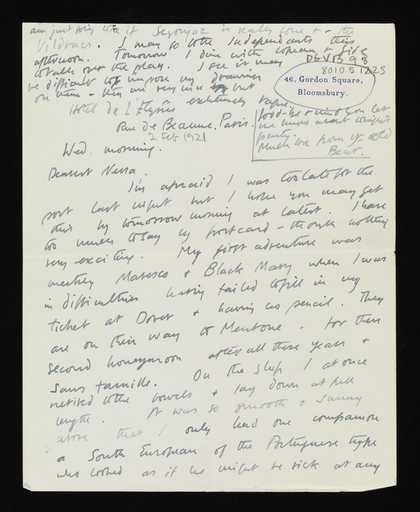 am just going to it. Segonzac is really gone & the
Vildracs. I may go to the Independants this
afternoon. Tomorrow I dine with Copeau & Gide
to talk over the play. I see it may
be difficult to impose my drawings
on them – they are very nice but
extremely
vague.
Good-bye & mind you let
me know about
party.
Much love from yr old
Bear.
46, Gordon Square,
Bloomsbury.
Hotel de l'Elysée
Rue de Beaune, Paris.
2 Feb 1921
Wed. morning.
Dearest Nessa
I'm afraid I was too late for the
post last night but I hope you may get
this by tomorrow morning at latest. I have
too much to say by postcard – though nothing
very exciting. My first adventure was
meeting Maresco & Black Mary when I was
in difficulties having failed to fill in my
ticket at Dover & having no pencil. They
are on their way to Mentone. for their
second honeymoon after all these years &
sans famille. On the ship I at once
retired to the bowels & lay down at full
length. It was so smooth & sunny
above that I only had one companion
a South European of the Portuguese type
who looked as if he might be sick at any